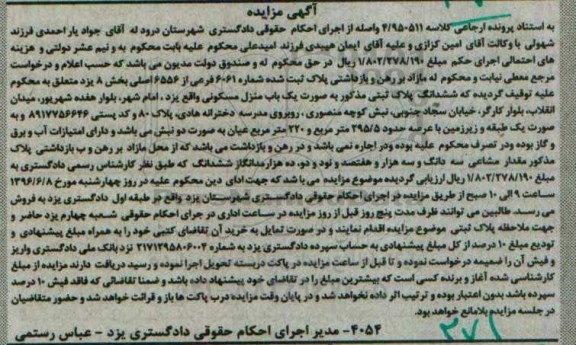 آگهی مزایده
به استناد پرونده ارجاعی کلاسه ۴/۹۵۰۵۱۱ واصله از اجرای احکام حقوقی دادگستری شهرستان درود له آقای جواد یار احمدی فرزند
شهولی با وکالت آقای امین کزازی و علیه آقای ایمان هیبدی فرزند امیدعلی محکوم علیه بابت محکوم به و نیم عشر دولتی و هزینه
های احتمالی اجرای حکم مبلغ ۱/۸۰۲/۲۷۸/۱۹۰ ریال در حق محکوم له و صندوق دولت مدیون می باشد که حسب اعلام و درخواست
مرجع معطی نیابت و محکوم له مازاد بر رهن و بازداشتی پلاک ثبت شده شماره ۶۰۶۱ فرعی از ۶۵۵۶ اصلی بخش ۸ یزد متعلق به محکوم
علیه توقیف گردیده که ششدانگ پلاک ثبتی مذکور به صورت یک باب منزل مسکونی واقع یزد ، امام شهر، بلوار دهه شهریور، میدان
انقلاب، بلوار کارگر، خیابان سجاد جنوبی، نبش کوچه منصوری ، روبروی مدرسه دخترانه هادی، پلاک ۸۰ و کد پستی ۸۹۱۷۷۵۶۶۴۶ و به
صورت یک طبقه و زیرزمین با عرصه حدود ۲۹۵/۵ متر مربع و ۲۲۰ متر مربع عیان به صورت دو نبش می باشد و دارای امتیازات آب و برق
و گاز بوده ودر تصرف محکوم علیه بوده ودر اجاره نمی باشد و در رهن و بازداشت می باشد که از محل مازاد بر رهن و ب بازداشتی پلاک
مذکور مقدار مشاعی سه دانگ و سه هزار و هفتصد و نود و دو، ده هزارمدانگاز ششدانگ که طبق نظر کارشناس رسمی دادگستری به
مبلغ ۱/۸۰۲/۲۷۸/۱۹۰ ریال ارزیابی گردیده موضوع مزایده می باشد که جهت ادای دین محکوم علیه در روز چهارشنبه مورخ ۱۳۹۶/۶/۸
ساعت ۹ الی ۱۰ صبح از طریق مزایده در اجرای احکام حقوقی دادگستری شهرستان یزد واقع در طبقه اول دادگستری یزد به فروش
می رسد. طالبین می توانند ظرف مدت پنج روز قبل از روز مزایده در ساعت اداری در جرای احکام حقوقی شعبه چهارم یزد حاضر و
جهت ملاحظه پلاک ثبتی موضوع مزایده اقدام نمایند و در صورت تمایل به خرید آن تقاضای کتبی خود را به همراه مبلغ پیشنهادی و
تودیع مبلغ ۱۰ درصد از کل مبلغ پیشنهادی به حساب سپرده دادگستری یزد به شماره ۲۱۷۱۲۹۵۸۰۶۰۰۴ نزد بانک ملی دادگستری واریز
و فیش آن را ضمیمه درخواست نموده و تا قبل از ساعت مزایده در پاکت دربسته تحویل اجرا نموده و رسید دریافت دارند مزایده از مبلغ
کارشناسی شده آغاز و برنده کسی است که بیشترین مبلغ را در تقاضای خود پیشنهاد داده باشد و ضمنا تقاضائی که فاقد فیش ۱۰ درصد
سپرده باشد بدون اعتبار بوده و ترتیب اثر داده نخواهد شد و در پایان وقت مزایده درب پاکت ها باز و قرائت خواهد شد و حضور متقاضیان
در جلسه مزایده بلامانع خواهد بود.
۴۰۵۴- مدیر اجرای احکام حقوقی دادگستری یزد - عباس رستمی
۳۷۱